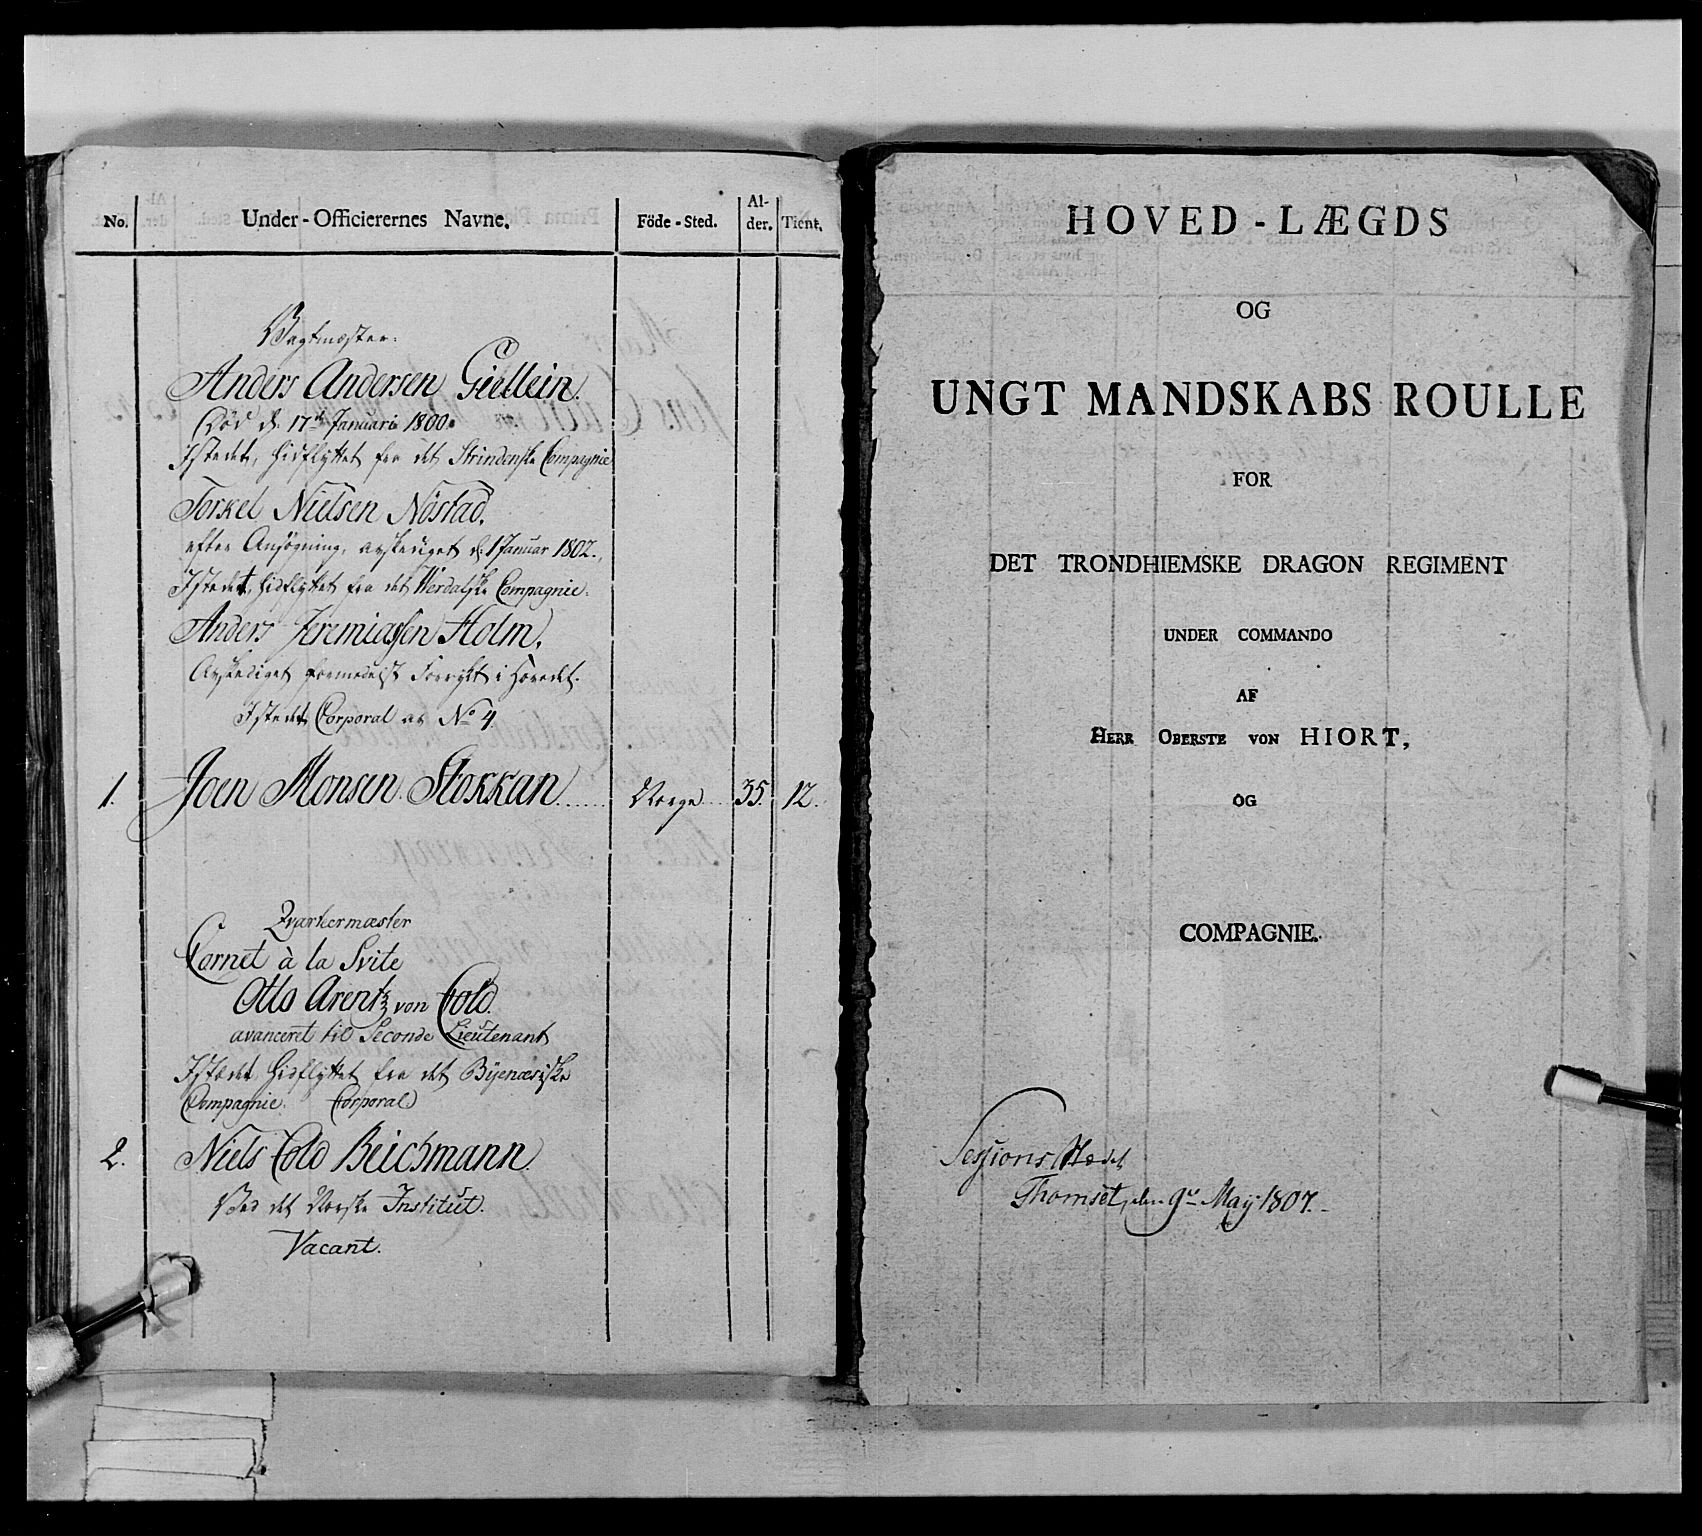 No. Under-Officierernes Navne. Föde-Sted. Al-der. Tient.
Vagtmæster.
Anders Andersen Giellein.
Död d. 17de Januari 1800.
Istedet, hidflyttet fra det Strindenske Compagnie
Torkel Nielsen Nöstad.
efter Ansögning, afskediget d. 1 Januar 1802.
Istedet, hidflyttet fra det Werdalske Compagnie.
Anders Jeremiassen Holm.
Afskediget formedelst Forrykt i Hovedet.
Istedet Corporal av No 4.
1. Joen Monsen Stokkan Norge 35. 12.
Qvarteermæster
Cornet à la Svite
Otto Arentz von Cold.
avanceret til Seconde Lieutenant
Istædet hidflyttet fra det Byenæsiske
Compagnie. Corporal
2. Niels Cold Beichmann.
Ved det Norske Institut.
Vacant.
HOVED-LÆGDS
OG
UNGT MANDSKABS ROULLE
FOR
DET TRONDHIEMSKE DRAGON REGIMENT
UNDER COMMANDO
AF
HERR OBERSTE VON HIORT,
OG
COMPAGNIE.
Sessions Stædet
Thomset, den 9de May 1807.